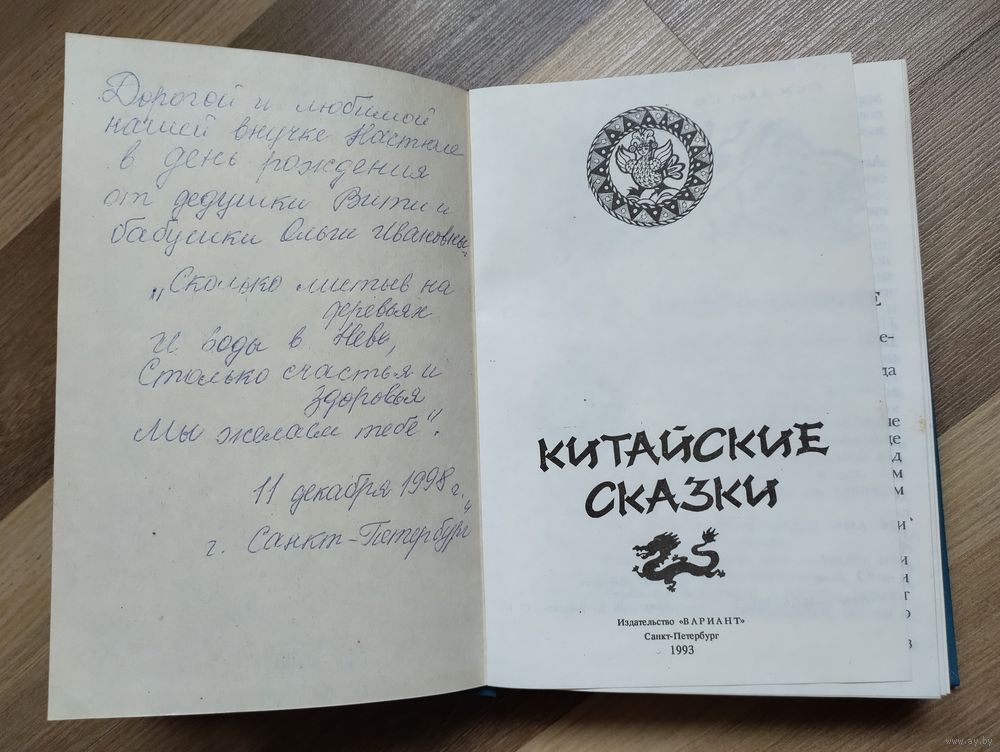 Дорогой и любимой
нашей внучке Настюше
в день рождения
от дедушки Вити и
бабушки Ольги Ивановны
„Сколько листьев на
деревьях
И воды в Неве,
Столько счастья и
здоровья
Мы желаем тебе".
11 декабря 1998 г.
г. Санкт-Петербург
КИТАЙСКИЕ
СКАЗКИ
Издательство «ВАРИАНТ»
Санкт-Петербург
1993
Е
е-
да
www.ay.by